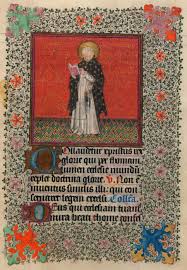 Collaudetur xpistus rex
glorie qui per thomam
lumen ecclesie mundū
replet doctrina glorie. V. Nō ē
inuentus similis illi: qui con
seruaret legem excelsi. Collecta.
Deus qui ecclesiam tuam
mira beati thome confes